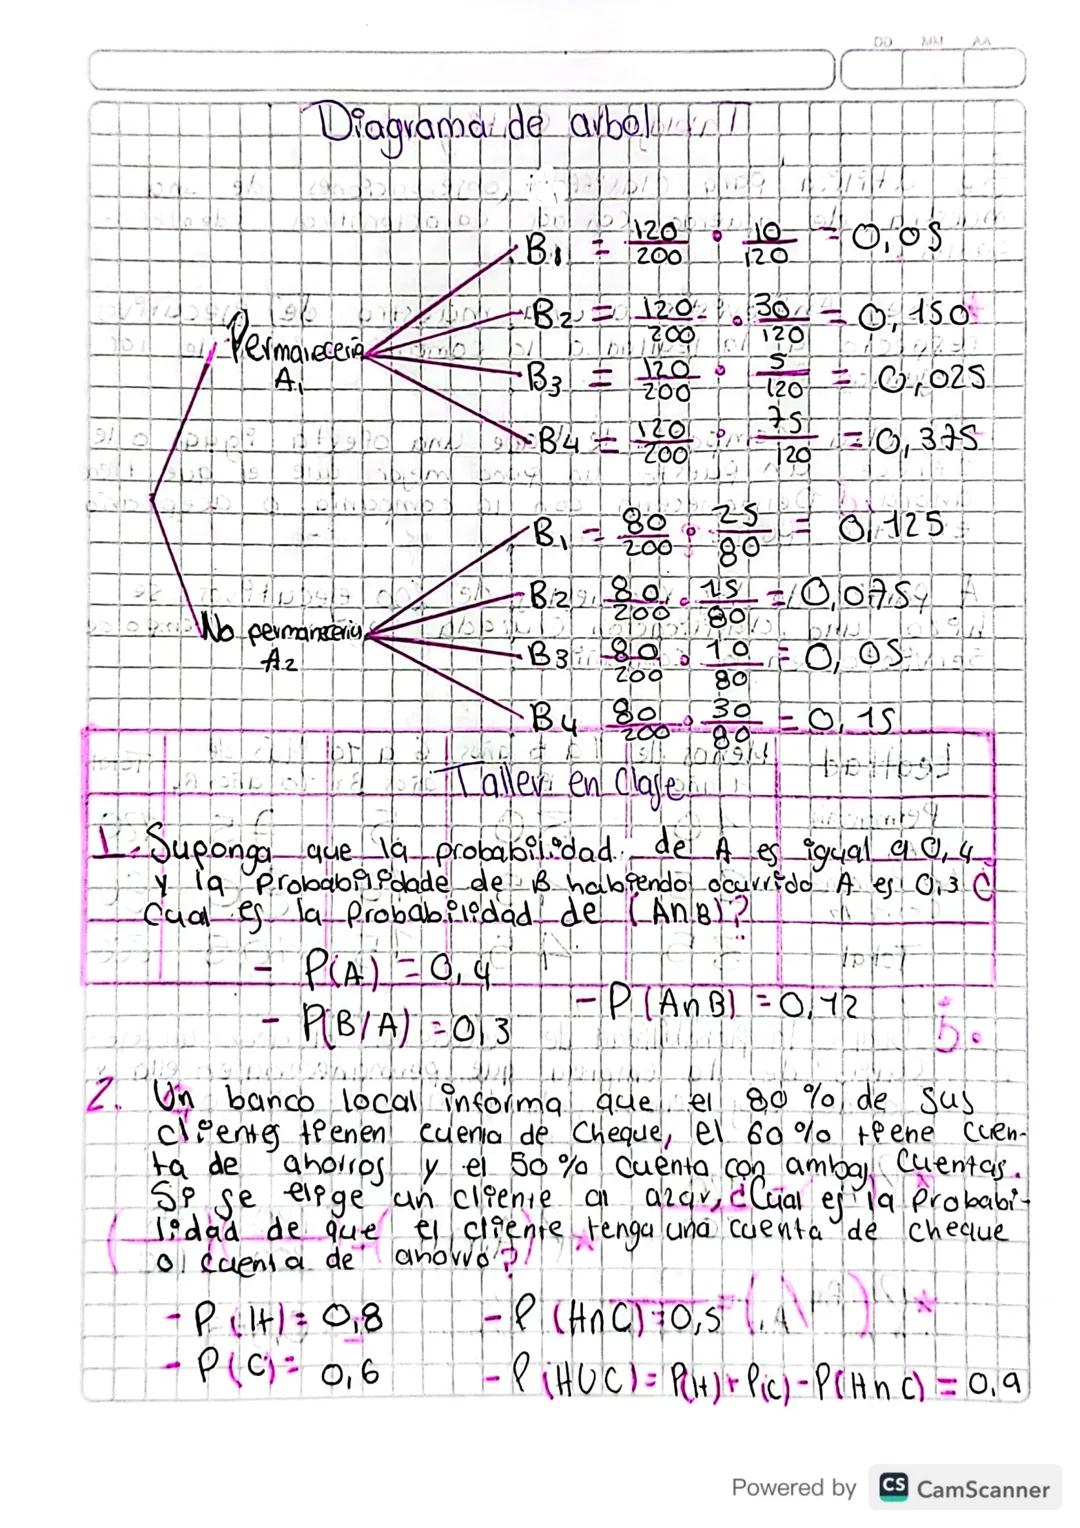 DD MM AA
Diagrama de arbol
B1 = 120/200 · 10/120 = 0,05
B2 = 120/200 · 30/120 = 0,150
Permanecería
A1
B3 = 120/200 · 5/120 = 0,025
B4 = 120/200 · 75/120 = 0,375
B1 = 80/200 · 25/80 = 0,125
B2 80/200 · 15/80 = 0,075
No permanecería
A2
B3 80/200 · 10/80 = 0,05
B4 80/200 · 30/80 = 0,15
Taller en Clase
1. Suponga que la probabilidad de A es igual a 0,4
y la Probabilidade de B habiendo ocurrido A es 0,3 ¿
Cual es la probabilidad de (A∩B)?
- P(A) = 0,4
- P(A∩B) = 0,12
- P(B/A) = 0,3
5.
2. Un banco local informa que el 80% de sus
clientes tienen cuenta de cheque, el 60% tiene cuen-
ta de ahorros y el 50% cuenta con ambas cuentas.
Si se elige un cliente al azar, ¿Cual es la probabi-
lidad de que el cliente tenga una cuenta de cheque
o cuenta de ahorro?
- P(H) = 0,8 - P(H∩C) = 0,5
- P(C) = 0,6 - P(HUC) = P(H) + P(C) - P(H∩C) = 0,9
Powered by CS CamScanner